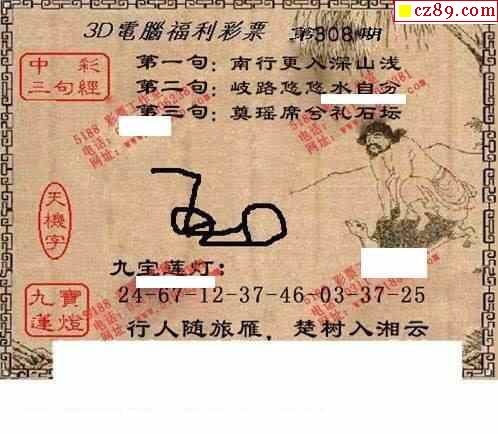 cz89.com
3D電腦福利彩票 第308期
中彩
三句經
第一句：南行更入深山浅
第二句：岐路悠悠水自分
第三句：奠瑶席兮礼石坛
天機字
九宝莲灯：
九寶
蓮燈
24-67-12-37-46 03-37-25
行人随旅雁，楚树入湘云